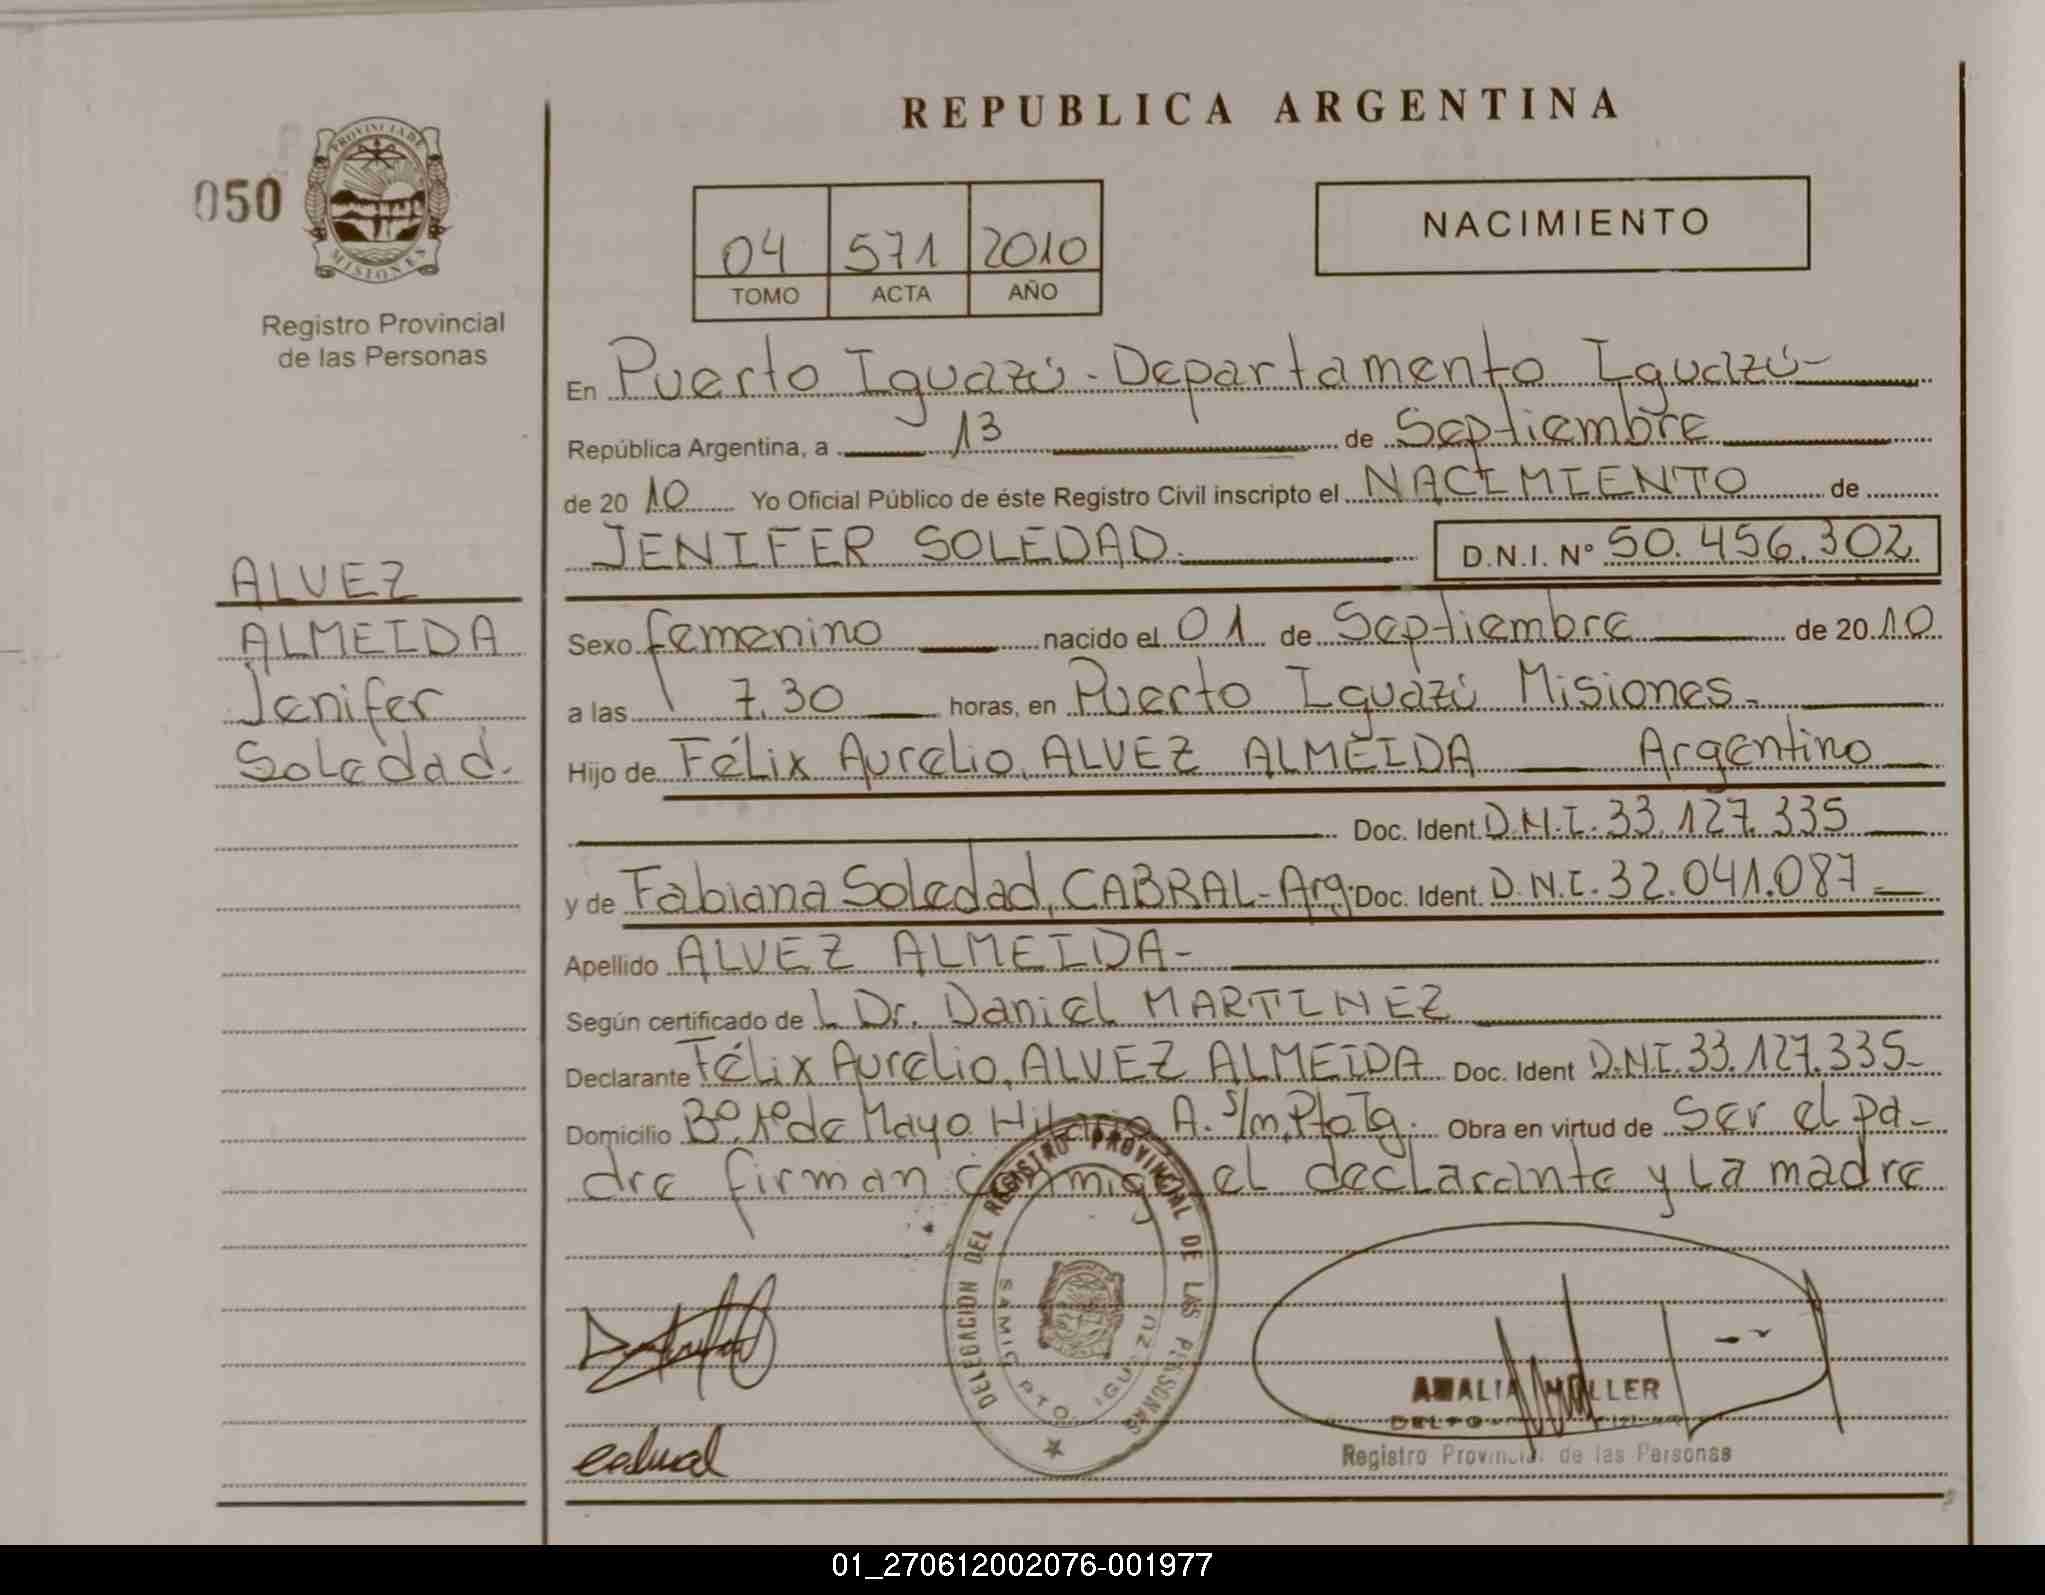 REPUBLICA ARGENTINA
050
PROVINCIA DE
MISIONES
Registro Provincial
de las Personas
04 571 2010
TOMO ACTA AÑO
NACIMIENTO
En Puerto Iguazú - Departamento Iguazú -
República Argentina, a 13 de Septiembre
de 2010 Yo Oficial Público de éste Registro Civil inscripto el NACIMIENTO de
JENIFER SOLEDAD. D.N.I. Nº 50.456.302
ALVEZ
ALMEIDA
Jenifer
Soledad.
Sexo femenino nacido el 01 de Septiembre de 2010
a las 7.30 horas, en Puerto Iguazú Misiones -
Hijo de Félix Aurelio, ALVEZ ALMEIDA Argentino
Doc. Ident. D.N.I. 33.127.335
y de Fabiana Soledad, CABRAL - Arg. Doc. Ident. D.N.I. 32.041.087 -
Apellido ALVEZ ALMEIDA -
Según certificado de L Dr. Daniel MARTINEZ
Declarante Félix Aurelio, ALVEZ ALMEIDA Doc. Ident D.N.I. 33.127.335 -
Domicilio Bº 1º de Mayo Hilario A. S/m, Pto Ig. Obra en virtud de Ser el pa-
dre firman conmigo el declarante y La madre
DELEGACION DEL REGISTRO PROVINCIAL DE LAS PERSONAS
SAMIC PTO. IGUAZU
AMALIA MULLER
Registro Provincial de las Personas
01_270612002076-001977